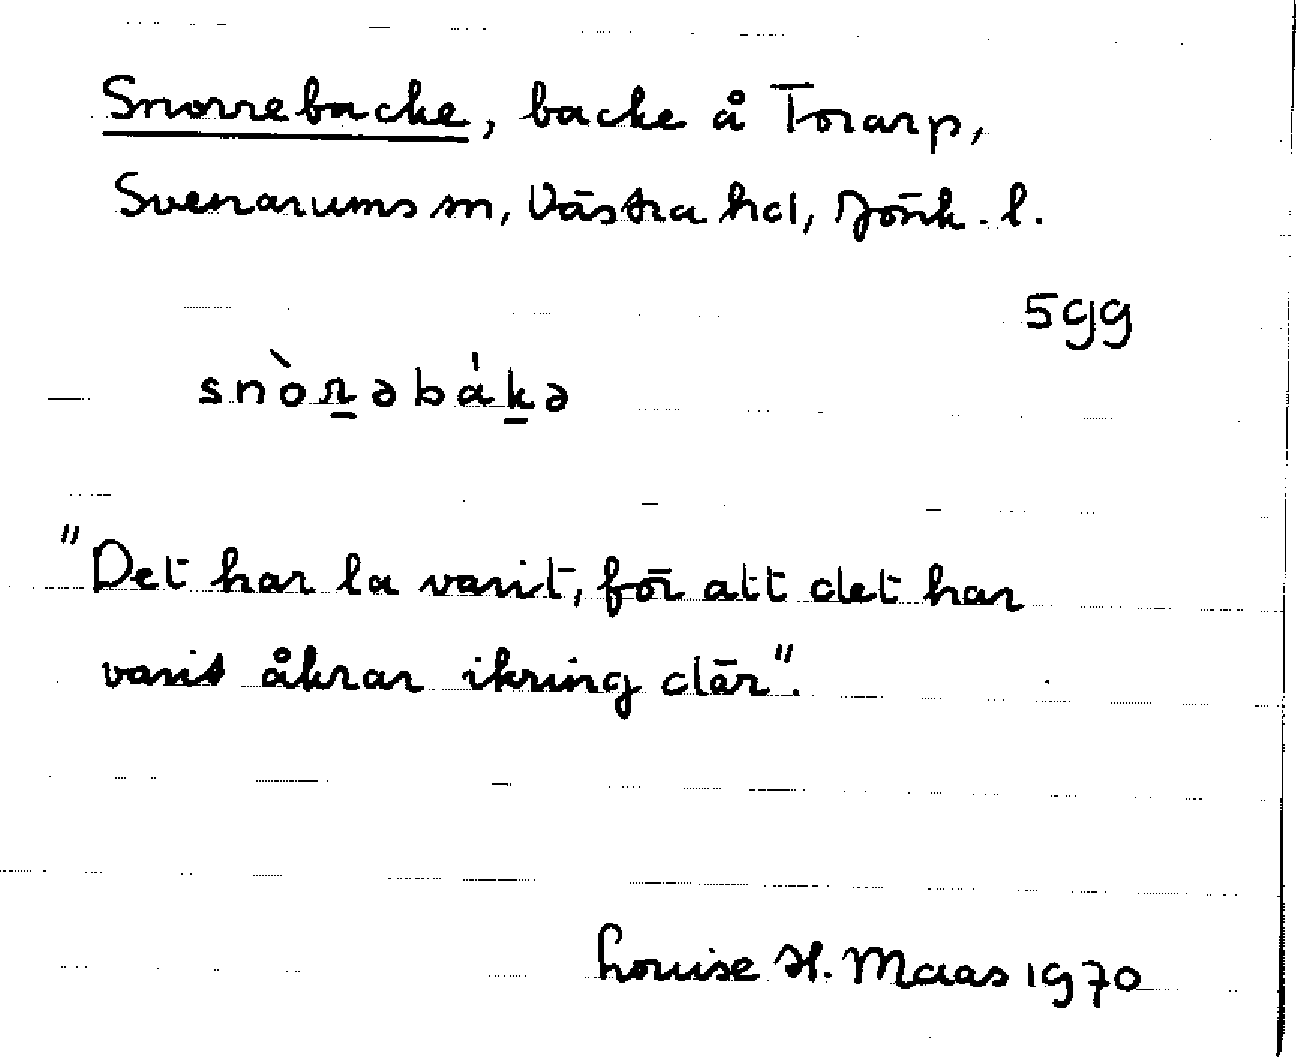 Snorrebacke, backe å Torarp,
Svenarums sn, Västra hd, Jönk. l.
5gg
snòr̲əbák̲ə
"Det har la varit, för att det har
varit åkrar ikring där".
Louise H. Maas 1970